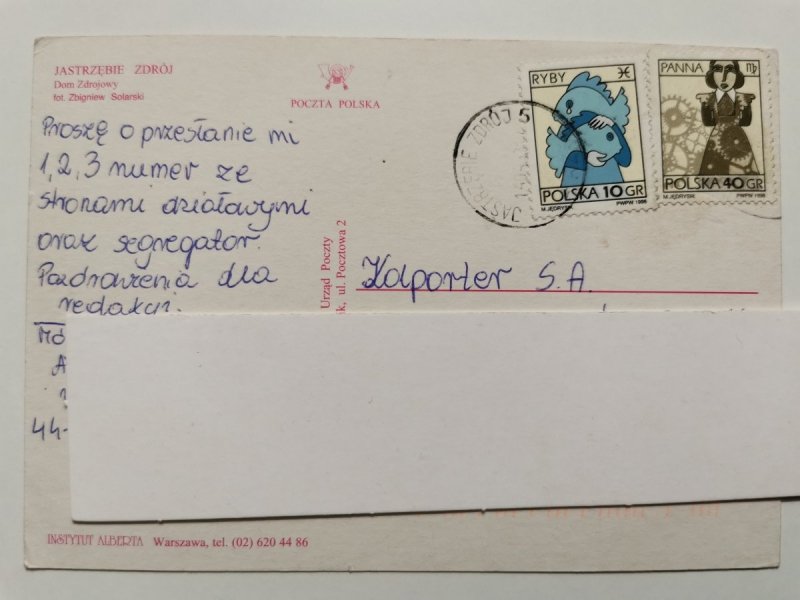 JASTRZĘBIE ZDRÓJ
Dom Zdrojowy
fot. Zbigniew Solarski
POCZTA POLSKA
Proszę o przesłanie mi
1, 2, 3 numer ze
stronami działowymi
oraz segregator.
Pozdrowienia dla
redakcji.
44-
INSTYTUT ALBERTA Warszawa, tel. (02) 620 44 86
Urząd Poczty
ul. Pocztowa 2
JASTRZĘBIE ZDRÓJ 5
RYBY
POLSKA 10 GR
M. JĘDRYSIK PWPW 1996
PANNA
POLSKA 40 GR
M. JĘDRYSIK PWPW 1996
Kaporter S.A.